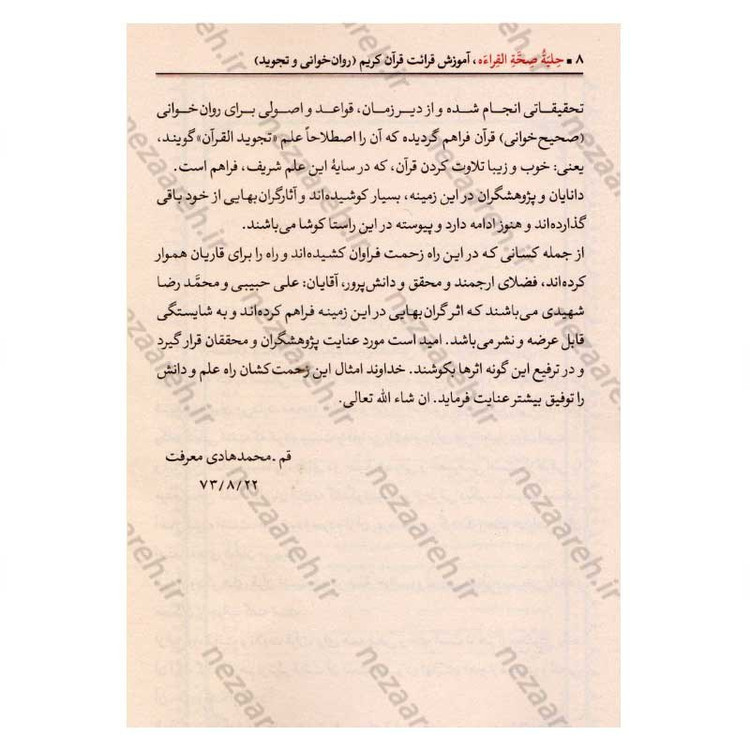 ۸ ■ حِلیَةُ صِحَّةِ القِراءَه، آموزش قرائت قرآن کریم (روان‌خوانی و تجوید)
تحقیقاتی انجام شده و از دیر زمان، قواعد و اصولی برای روان خوانی
(صحیح‌خوانی) قرآن فراهم گردیده که آن را اصطلاحاً علم «تجوید القرآن» گویند،
یعنی: خوب و زیبا تلاوت کردن قرآن، که در سایۀ این علم شریف، فراهم است.
دانایان و پژوهشگران در این زمینه، بسیار کوشیده‌اند و آثار گران‌بهایی از خود باقی
گذارده‌اند و هنوز ادامه دارد و پیوسته در این راستا کوشا می‌باشند.
از جمله کسانی که در این راه زحمت فراوان کشیده‌اند و راه را برای قاریان هموار
کرده‌اند، فضلای ارجمند و محقق و دانش‌پرور، آقایان: علی حبیبی و محمَّد رضا
شهیدی می‌باشند که اثر گران‌بهایی در این زمینه فراهم کرده‌اند و به شایستگی
قابل عرضه و نشر می‌باشد. امید است مورد عنایت پژوهشگران و محققان قرار گیرد
و در ترفیع این گونه اثرها بکوشند. خداوند امثال این زحمت‌کشان راه علم و دانش
را توفیق بیشتر عنایت فرماید. ان شاء الله تعالی.
قم ـ محمدهادی معرفت
۷۳/۸/۲۲
nezaareh.ir